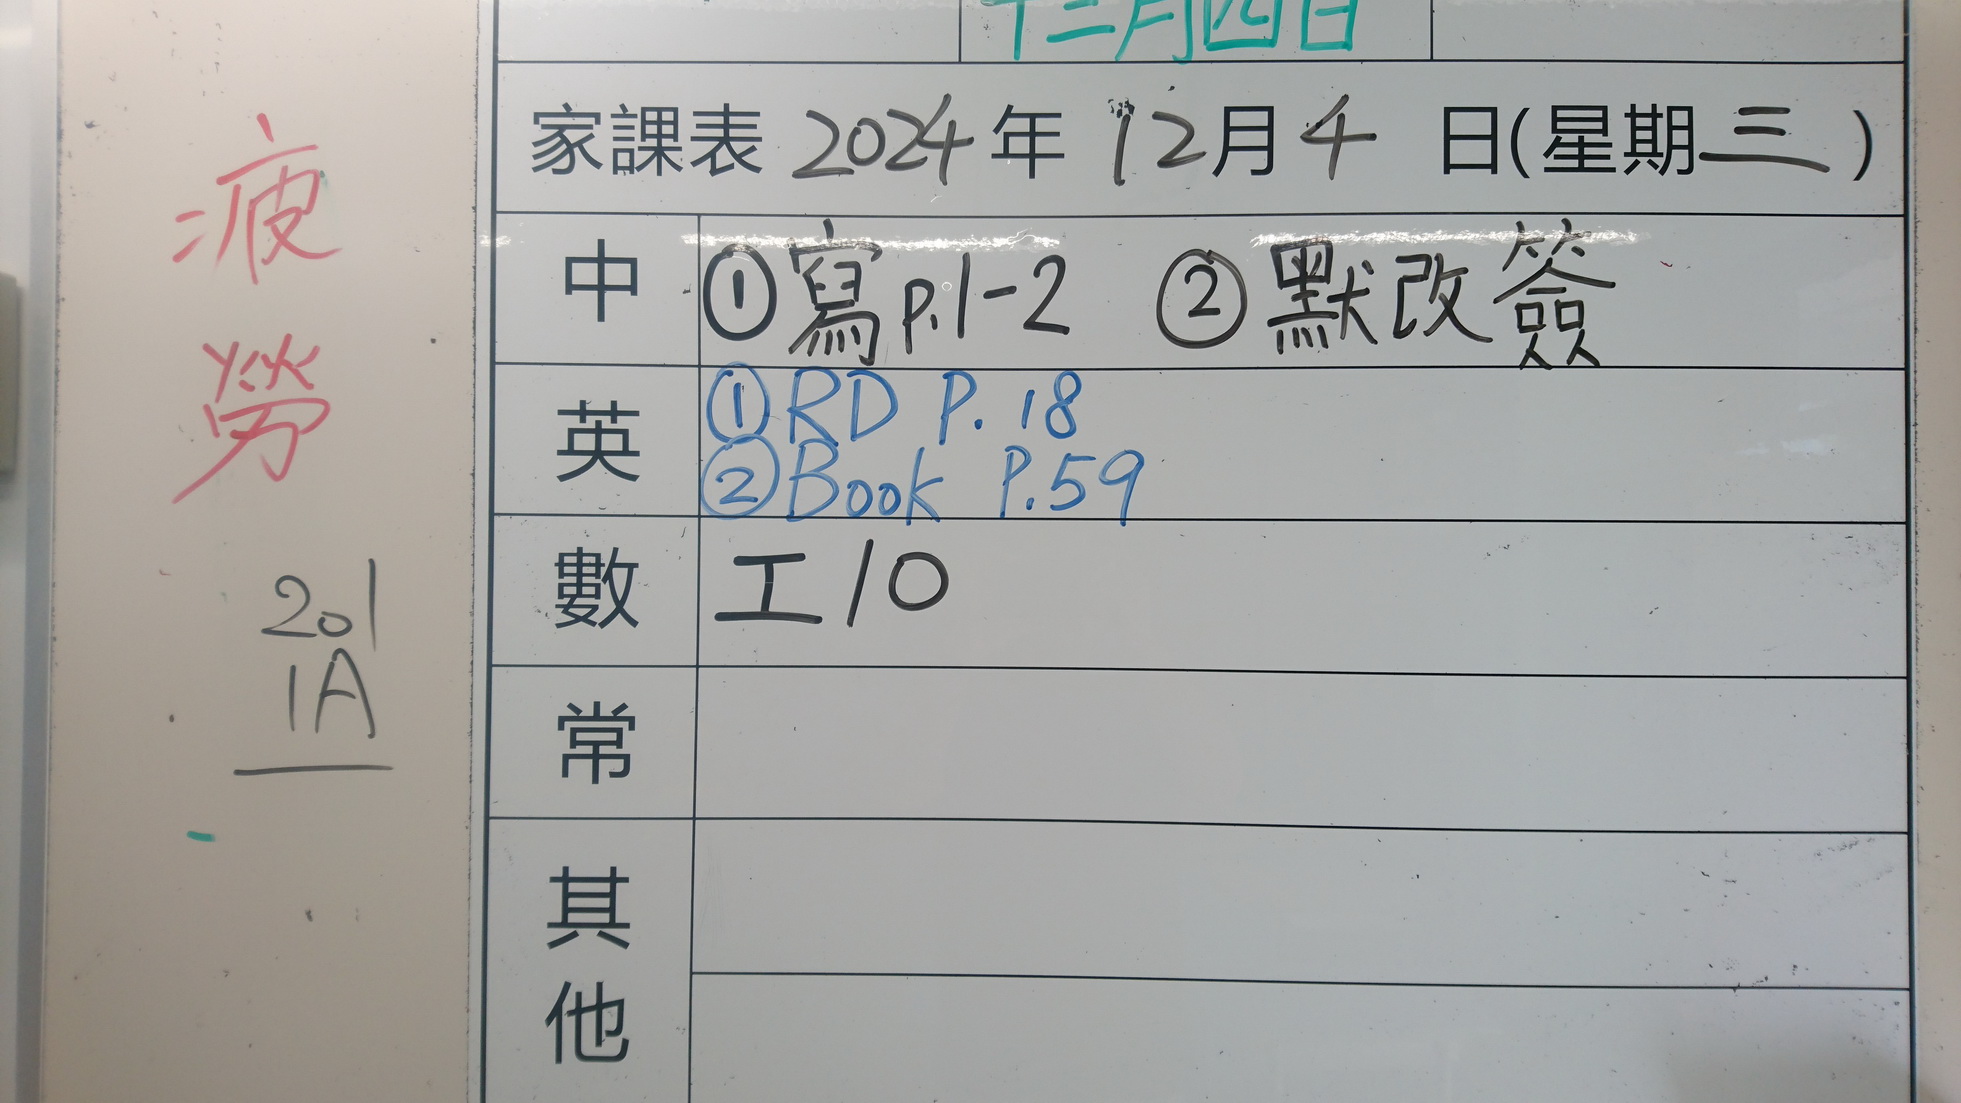 十二月四日
家課表 2024 年 12 月 4 日(星期三)
中 ①寫p.1-2 ②默改簽
英 ①RD P.18
②Book P.59
數 工10
常
其他
疲勞
201
1A